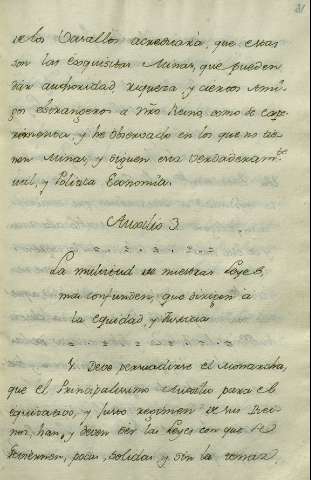 31
de los Vasallos acreditaria, que estas
son las exquisitas Minas, que pueden
dàr authoridad, riqueza, y ciertos Ami-
gos estrangeros à Vřo Reino, como se expe-
rimenta, y he observado en los que no tie-
nen Minas, y siguen esta verdaderam.te
util, y Politica Economia.
Auxilio 3.
La multitud de nuestras Leyes,
mas confunden, que dirigen à
la equidad, y Justicia
Y. Deve persuadirse el Monarcha,
que el Principalissimo Auxilio para el
equitativo, y justo regimen de sus Rei-
nos, han, y deven ser las Leyes con que se
goviernen, pocas, solidas, y sin la tenaz